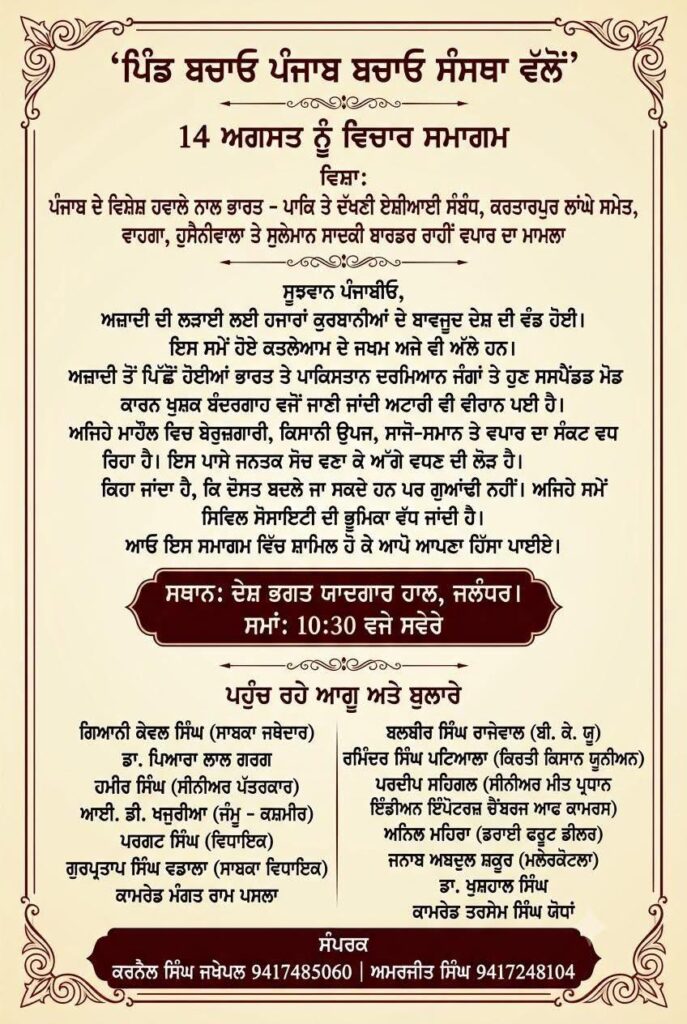 ‘ਪਿੰਡ ਬਚਾਓ ਪੰਜਾਬ ਬਚਾਓ ਸੰਸਥਾ ਵੱਲੋਂ’
14 ਅਗਸਤ ਨੂੰ ਵਿਚਾਰ ਸਮਾਗਮ
ਵਿਸ਼ਾ:
ਪੰਜਾਬ ਦੇ ਵਿਸ਼ੇਸ਼ ਹਵਾਲੇ ਨਾਲ ਭਾਰਤ - ਪਾਕਿ ਤੇ ਦੱਖਣੀ ਏਸ਼ੀਆਈ ਸੰਬੰਧ, ਕਰਤਾਰਪੁਰ ਲਾਂਘੇ ਸਮੇਤ,
ਵਾਹਗਾ, ਹੁਸੈਨੀਵਾਲਾ ਤੇ ਸੁਲੇਮਾਨ ਸਾਦਕੀ ਬਾਰਡਰ ਰਾਹੀਂ ਵਪਾਰ ਦਾ ਮਾਮਲਾ
ਸੂਝਵਾਨ ਪੰਜਾਬੀਓ,
ਅਜ਼ਾਦੀ ਦੀ ਲੜਾਈ ਲਈ ਹਜਾਰਾਂ ਕੁਰਬਾਨੀਆਂ ਦੇ ਬਾਵਜੂਦ ਦੇਸ਼ ਦੀ ਵੰਡ ਹੋਈ।
ਇਸ ਸਮੇਂ ਹੋਏ ਕਤਲੇਆਮ ਦੇ ਜਖਮ ਅਜੇ ਵੀ ਅੱਲੇ ਹਨ।
ਅਜ਼ਾਦੀ ਤੋਂ ਪਿੱਛੋਂ ਹੋਈਆਂ ਭਾਰਤ ਤੇ ਪਾਕਿਸਤਾਨ ਦਰਮਿਆਨ ਜੰਗਾਂ ਤੇ ਹੁਣ ਸਸਪੈਂਡਡ ਮੋਡ
ਕਾਰਨ ਖੁਸ਼ਕ ਬੰਦਰਗਾਹ ਵਜੋਂ ਜਾਣੀ ਜਾਂਦੀ ਅਟਾਰੀ ਵੀ ਵੀਰਾਨ ਪਈ ਹੈ।
ਅਜਿਹੇ ਮਾਹੌਲ ਵਿਚ ਬੇਰੁਜ਼ਗਾਰੀ, ਕਿਸਾਨੀ ਉਪਜ, ਸਾਜੋ-ਸਮਾਨ ਤੇ ਵਪਾਰ ਦਾ ਸੰਕਟ ਵਧ
ਰਿਹਾ ਹੈ। ਇਸ ਪਾਸੇ ਜਨਤਕ ਸੋਚ ਵਣਾ ਕੇ ਅੱਗੇ ਵਧਣ ਦੀ ਲੋੜ ਹੈ।
ਕਿਹਾ ਜਾਂਦਾ ਹੈ, ਕਿ ਦੋਸਤ ਬਦਲੇ ਜਾ ਸਕਦੇ ਹਨ ਪਰ ਗੁਆਂਢੀ ਨਹੀਂ। ਅਜਿਹੇ ਸਮੇਂ
ਸਿਵਿਲ ਸੋਸਾਇਟੀ ਦੀ ਭੂਮਿਕਾ ਵੱਧ ਜਾਂਦੀ ਹੈ।
ਆਓ ਇਸ ਸਮਾਗਮ ਵਿੱਚ ਸ਼ਾਮਿਲ ਹੋ ਕੇ ਆਪੋ ਆਪਣਾ ਹਿੱਸਾ ਪਾਈਏ।
ਸਥਾਨ: ਦੇਸ਼ ਭਗਤ ਯਾਦਗਾਰ ਹਾਲ, ਜਲੰਧਰ।
ਸਮਾਂ: 10:30 ਵਜੇ ਸਵੇਰੇ
ਪਹੁੰਚ ਰਹੇ ਆਗੂ ਅਤੇ ਬੁਲਾਰੇ
ਗਿਆਨੀ ਕੇਵਲ ਸਿੰਘ (ਸਾਬਕਾ ਜਥੇਦਾਰ)
ਡਾ. ਪਿਆਰਾ ਲਾਲ ਗਰਗ
ਹਮੀਰ ਸਿੰਘ (ਸੀਨੀਅਰ ਪੱਤਰਕਾਰ)
ਆਈ. ਡੀ. ਖਜੁਰੀਆ (ਜੰਮੂ - ਕਸ਼ਮੀਰ)
ਪਰਗਟ ਸਿੰਘ (ਵਿਧਾਇਕ)
ਗੁਰਪ੍ਰਤਾਪ ਸਿੰਘ ਵਡਾਲਾ (ਸਾਬਕਾ ਵਿਧਾਇਕ)
ਕਾਮਰੇਡ ਮੰਗਤ ਰਾਮ ਪਸਲਾ
ਬਲਬੀਰ ਸਿੰਘ ਰਾਜੇਵਾਲ (ਬੀ. ਕੇ. ਯੂ)
ਰਮਿੰਦਰ ਸਿੰਘ ਪਟਿਆਲਾ (ਕਿਰਤੀ ਕਿਸਾਨ ਯੂਨੀਅਨ)
ਪਰਦੀਪ ਸਹਿਗਲ (ਸੀਨੀਅਰ ਮੀਤ ਪ੍ਰਧਾਨ
ਇੰਡੀਅਨ ਇੰਪੋਟਰਜ਼ ਚੈਂਬਰਜ ਆਫ ਕਾਮਰਸ)
ਅਨਿਲ ਮਹਿਰਾ (ਡਰਾਈ ਫਰੂਟ ਡੀਲਰ)
ਜਨਾਬ ਅਬਦੁਲ ਸ਼ਕੂਰ (ਮਲੇਰਕੋਟਲਾ)
ਡਾ. ਖੁਸ਼ਹਾਲ ਸਿੰਘ
ਕਾਮਰੇਡ ਤਰਸੇਮ ਸਿੰਘ ਯੋਧਾਂ
ਸੰਪਰਕ
ਕਰਨੈਲ ਸਿੰਘ ਜਖੇਪਲ 9417485060 | ਅਮਰਜੀਤ ਸਿੰਘ 9417248104